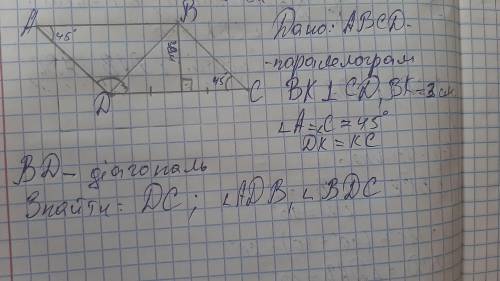 A
B
45°
3см
45°
D
C
Дано: ABCD-
-паралелограм
BK ⊥ CD, BK = 3 см
∠A = ∠C = 45°
DK = KC
BD - діагональ
Знайти: DC; ∠ADB; ∠BDC